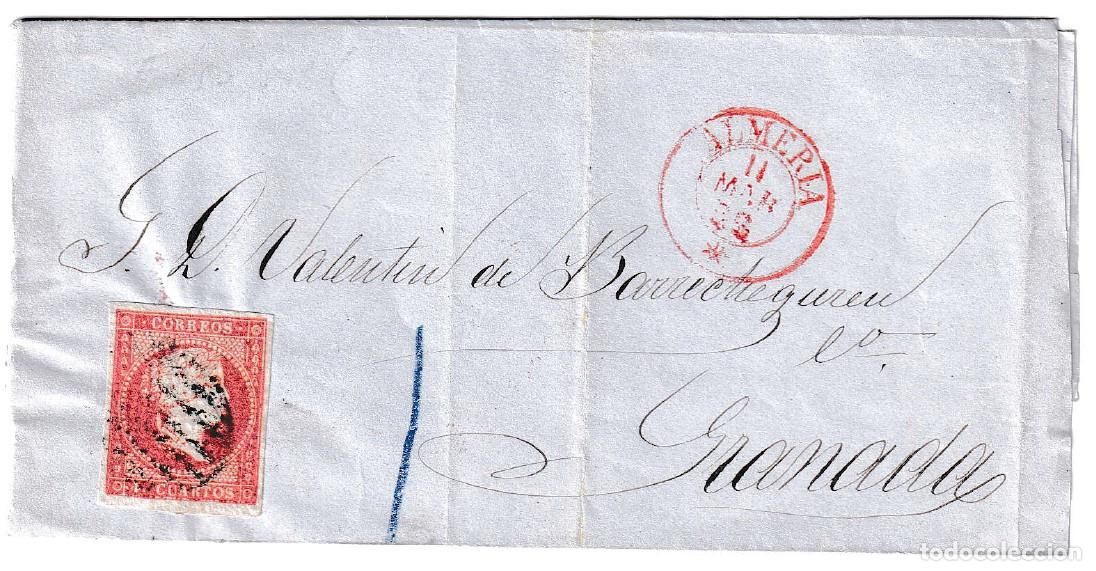 ALMERIA
11
MAR
S. D. Valentin de Barrecheguren
CORREOS
Co.
Granada
CUARTOS
todocoleccion